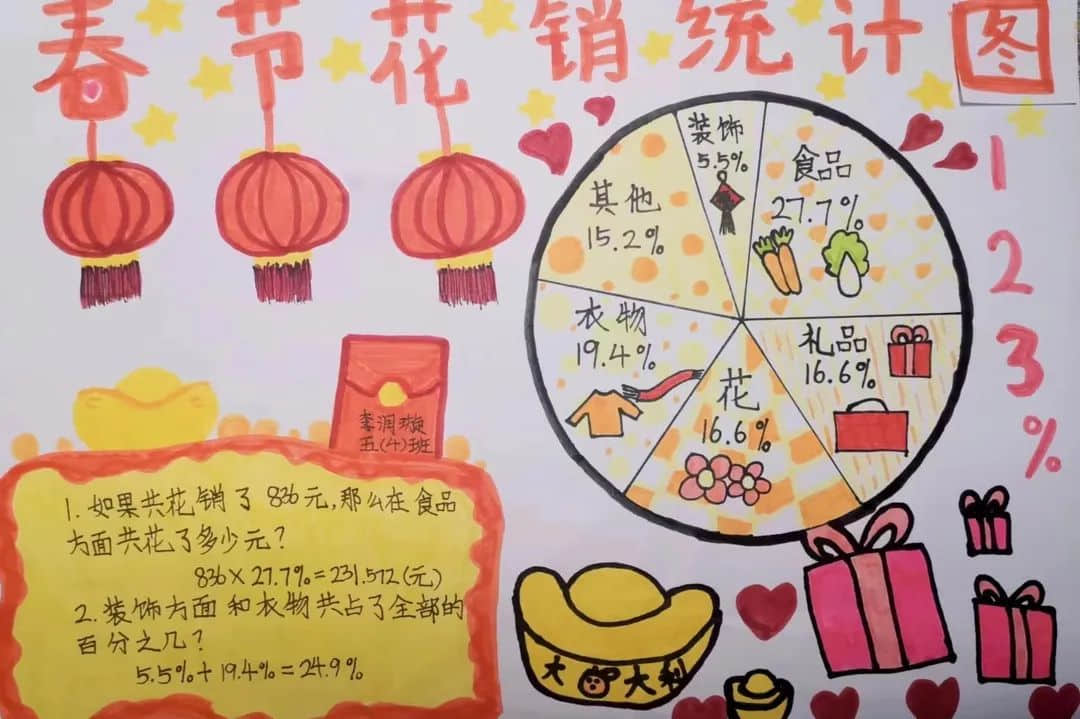 春节花销统计图
装饰
5.5%
食品
27.7%
其他
15.2%
衣物
19.4%
礼品
16.6%
花
16.6%
1
2
3
%
李润璇
五(4)班
1.如果共花销了836元,那么在食品
方面共花了多少元?
836×27.7%=231.572(元)
2.装饰方面和衣物共占了全部的
百分之几?
5.5%+19.4%=24.9%
大 大利